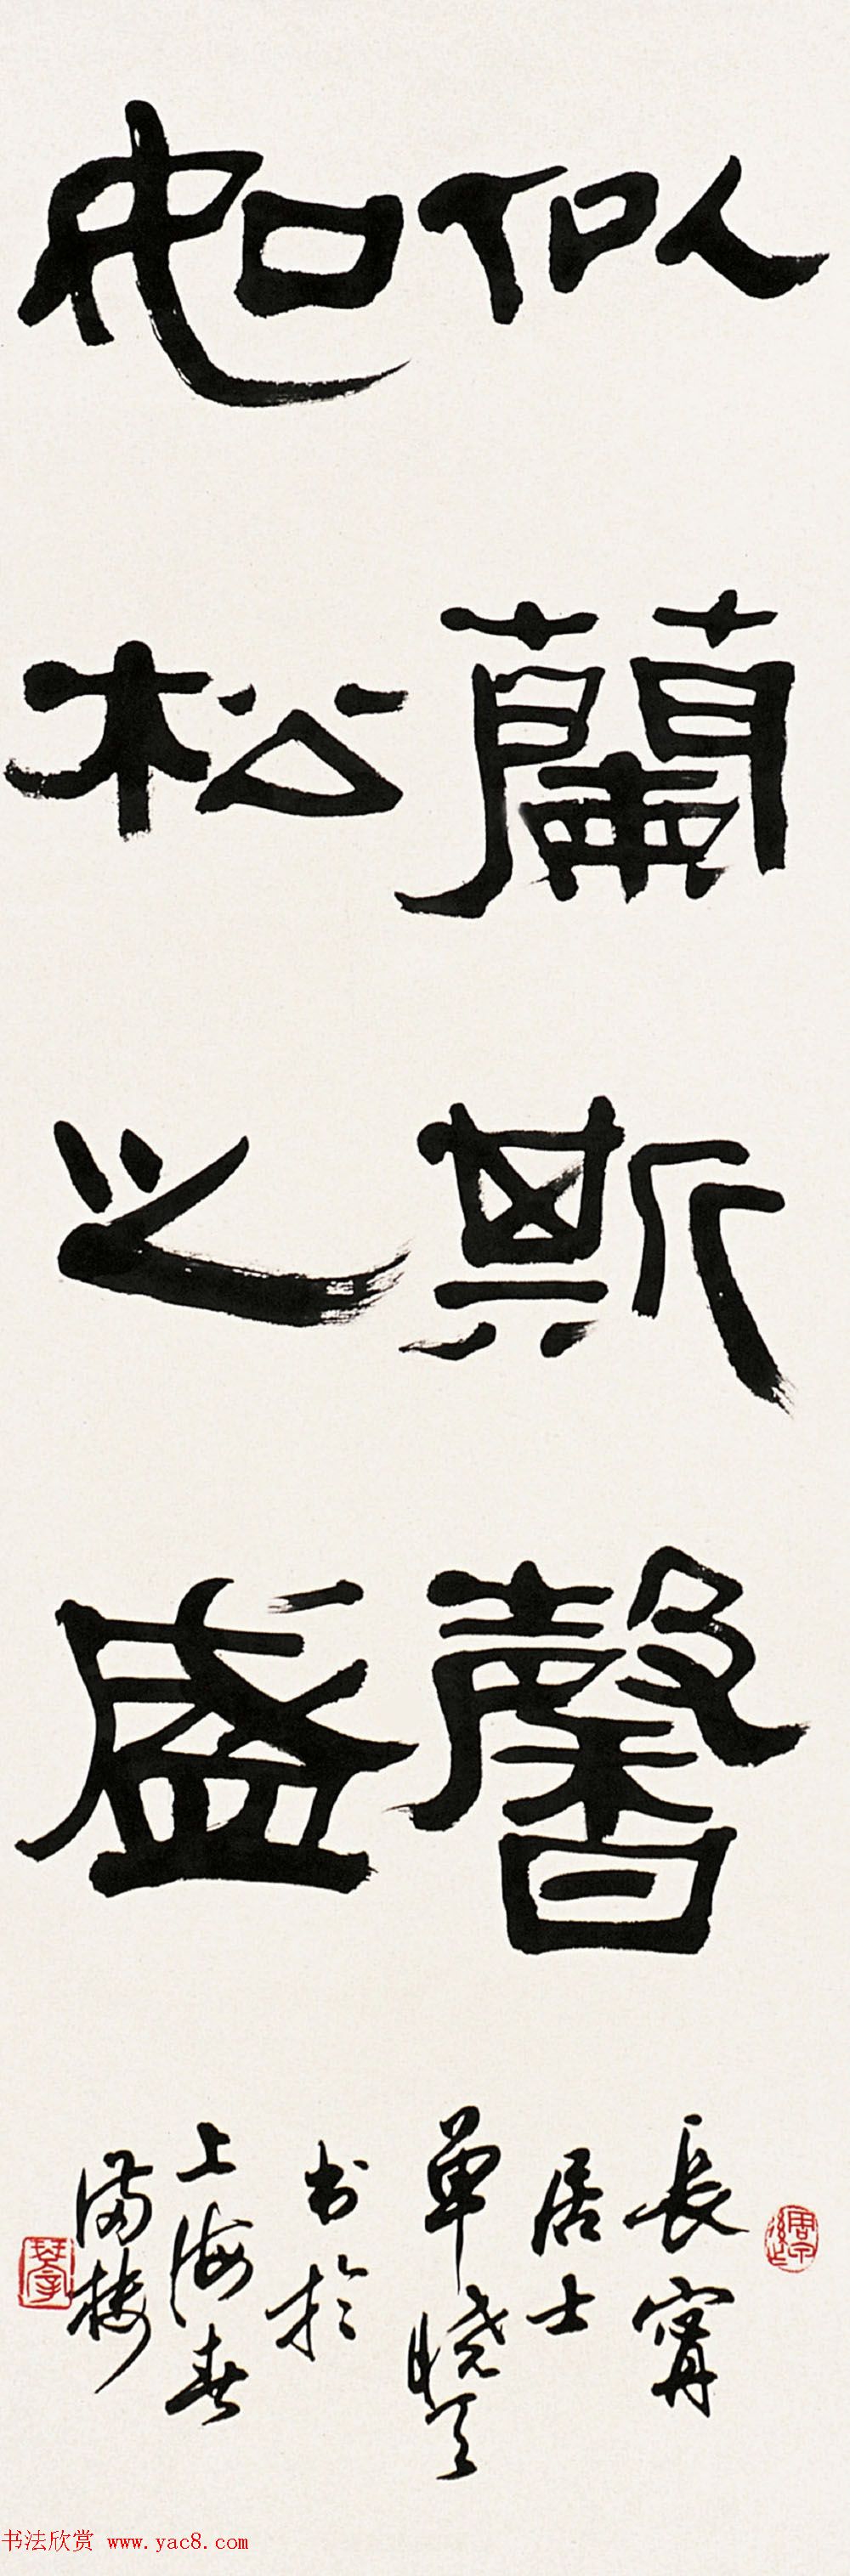 似蘭斯馨
如松之盛
長甯
居士
單曉天
书於
上海春
满楼
书法欣赏 www.yac8.com